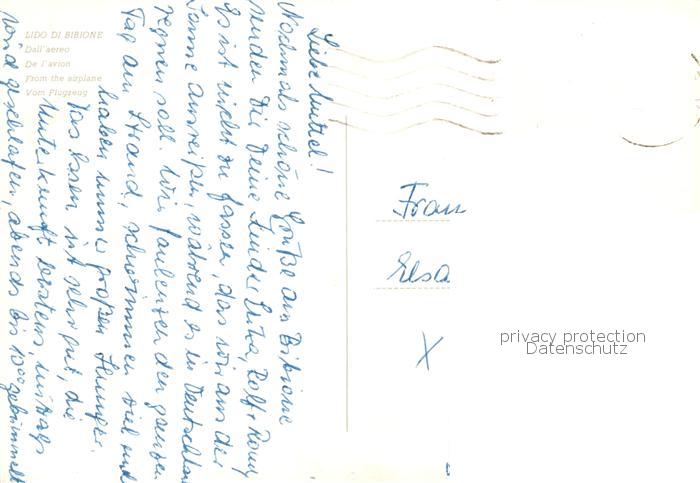 LIDO DI BIBIONE
Dall'aereo
De l'avion
From the airplane
Vom Flugzeug
Liebe Muttel!
Nochmals schöne Grüße aus Bibione
senden Dir Deine Kinder Erika, Rolf + Romy
Es ist nicht zu fassen, das wir aus der
Sonne ausreißen, während es in Deutschlan
regnen soll. Wir faulenzen den ganzen
Tag am Strand, schwimmen viel und
haben immer großen Hunger.
Das Essen ist sehr gut, die
Unterkunft bestens, mittags
wird geschlafen, abends bis 10⁰⁰ gebummelt
Frau
Elsa
X
privacy protection
Datenschutz